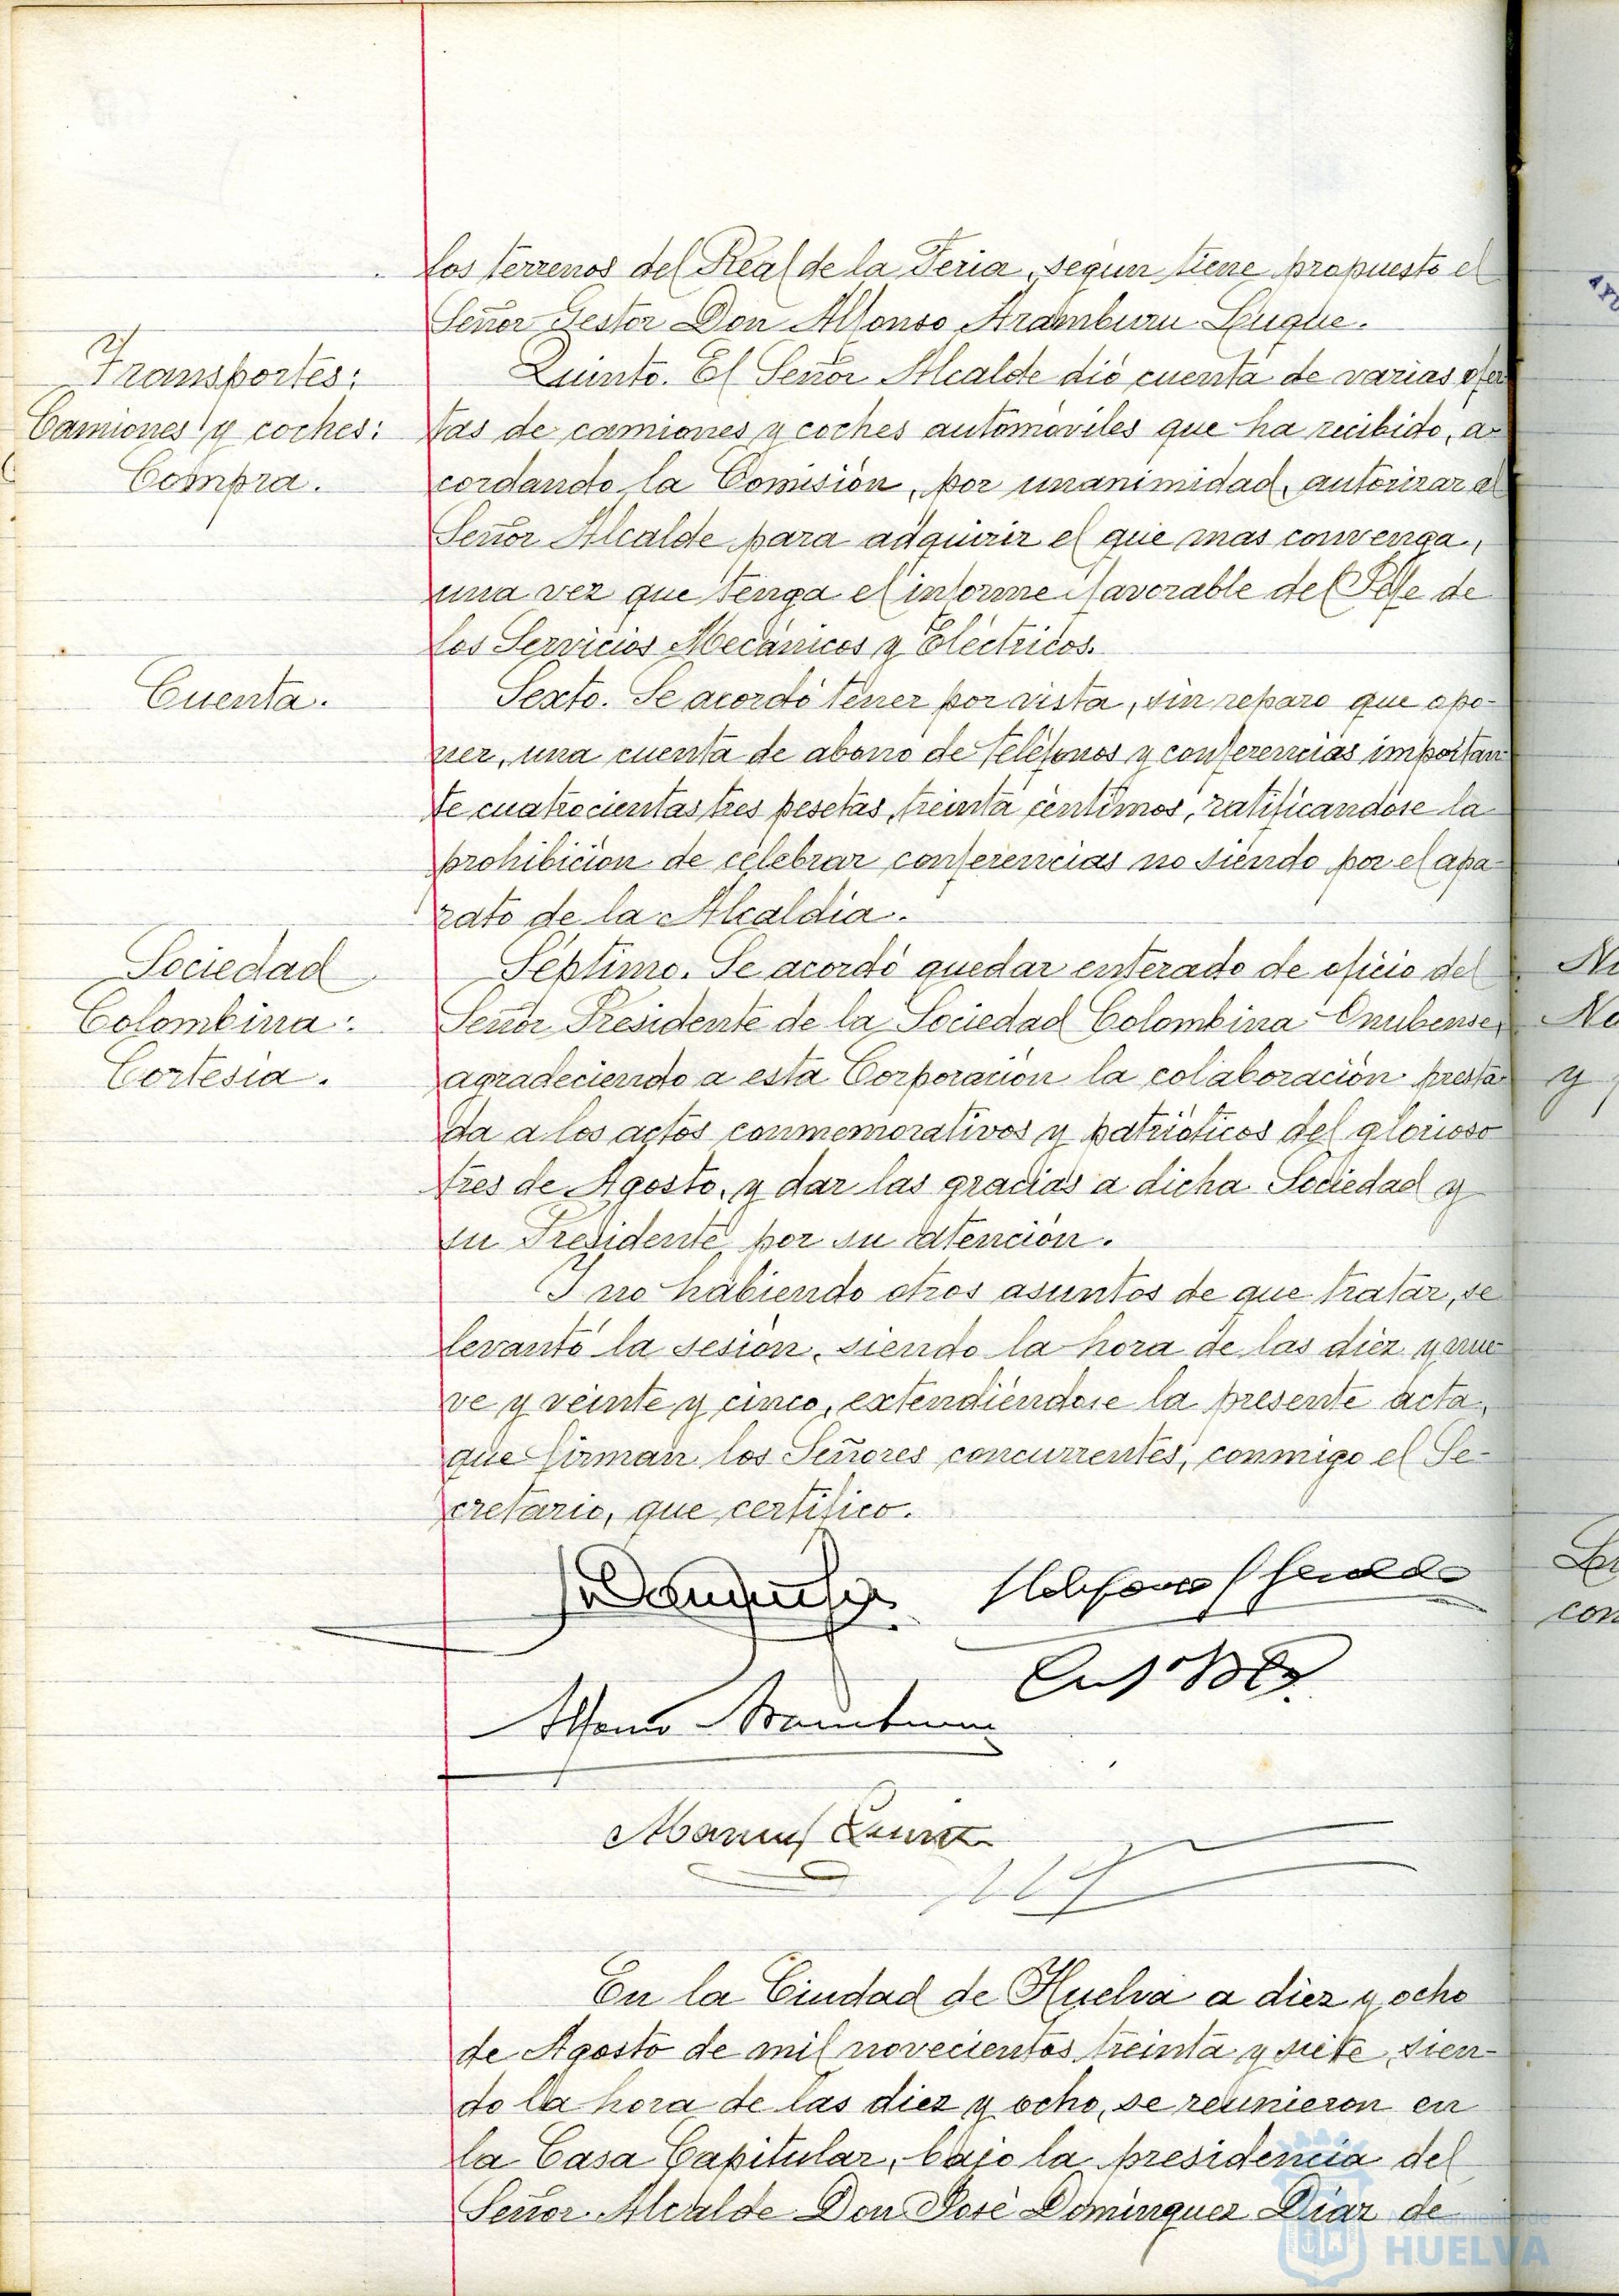 los terrenos del Real de la Feria, según tiene propuesto el
Señor Gestor Don Alfonso Aramburu Luque.
Transportes:
Camiones y coches:
Compra.
Quinto. El Señor Alcalde dió cuenta de varias ofer
tas de camiones y coches automóviles que ha recibido, a-
cordando la Comisión, por unanimidad, autorizar al
Señor Alcalde para adquirir el que mas convenga,
una vez que tenga el informe favorable del Jefe de
los Servicios Mecánicos y Eléctricos.
Cuenta.
Sexto. Se acordó tener por vista, sin reparo que opo-
ner, una cuenta de abono de teléfonos y conferencias importan
te cuatrocientas tres pesetas, treinta céntimos, ratificandose la
prohibición de celebrar conferencias no siendo por el apa-
rato de la Alcaldia.
Sociedad
Colombina:
Cortesia.
Séptimo. Se acordó quedar enterado de oficio del
Señor Presidente de la Sociedad Colombina Onubense,
agradeciendo a esta Corporación la colaboración presta-
da a los actos conmemorativos y patrióticos del glorioso
tres de Agosto, y dar las gracias a dicha Sociedad y
su Presidente por su atención.
Y no habiendo otros asuntos de que tratar, se
levantó la sesión, siendo la hora de las diez y nue
ve y veinte y cinco, extendiéndose la presente acta,
que firman los Señores concurrentes, conmigo el Se-
cretario, que certifico.
Alfonso Aramburu
Manuel
En la Ciudad de Huelva a diez y ocho
de Agosto de mil novecientos treinta y siete, sien-
do la hora de las diez y ocho, se reunieron en
la Casa Capitular, bajo la presidencia del
Señor Alcalde Don José Dominguez Diaz de
HUELVA